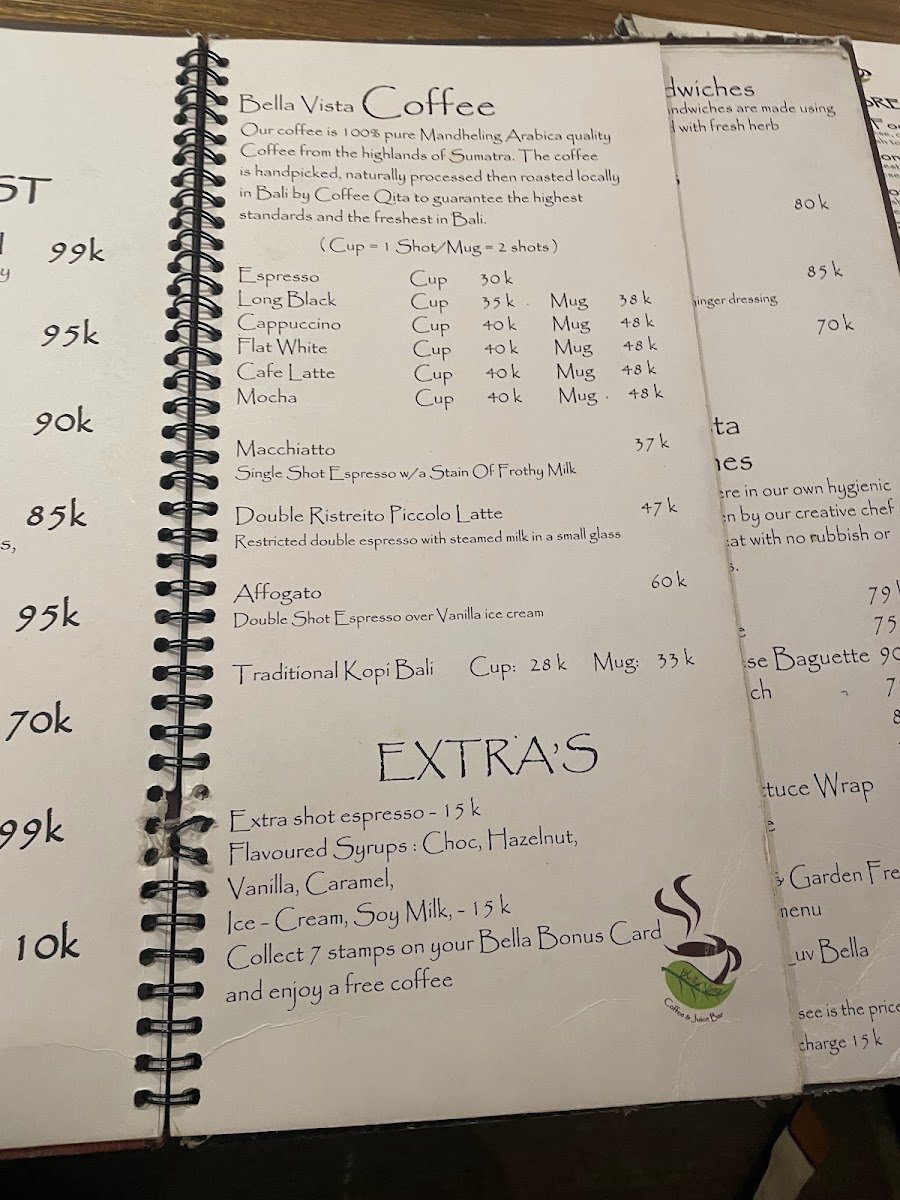 ST
99k
y
95k
90k
85k
s,
95k
70k
99k
10k
Bella Vista Coffee
Our coffee is 100% pure Mandheling Arabica quality
Coffee from the highlands of Sumatra. The coffee
is handpicked, naturally processed then roasted locally
in Bali by Coffee Qita to guarantee the highest
standards and the freshest in Bali.
(Cup = 1 Shot/Mug = 2 shots)
Espresso Cup 30k
Long Black Cup 35k Mug 38k
Cappuccino Cup 40k Mug 48k
Flat White Cup 40k Mug 48k
Cafe Latte Cup 40k Mug 48k
Mocha Cup 40k Mug 48k
Macchiatto 37k
Single Shot Espresso w/a Stain Of Frothy Milk
Double Ristreito Piccolo Latte 47k
Restricted double espresso with steamed milk in a small glass
Affogato 60k
Double Shot Espresso over Vanilla ice cream
Traditional Kopi Bali Cup: 28k Mug: 33k
EXTRA'S
Extra shot espresso - 15k
Flavoured Syrups : Choc, Hazelnut,
Vanilla, Caramel,
Ice - Cream, Soy Milk, - 15k
Collect 7 stamps on your Bella Bonus Card
and enjoy a free coffee
Bella Vista
Coffee & Juice Bar
dwiches
ndwiches are made using
d with fresh herb
80k
85k
inger dressing
70k
ta
nes
ere in our own hygienic
en by our creative chef
eat with no rubbish or
s.
79
75
e
se Baguette 90
ch 7
8
ttuce Wrap
e
& Garden Fre
menu
Luv Bella
see is the price
charge 15k